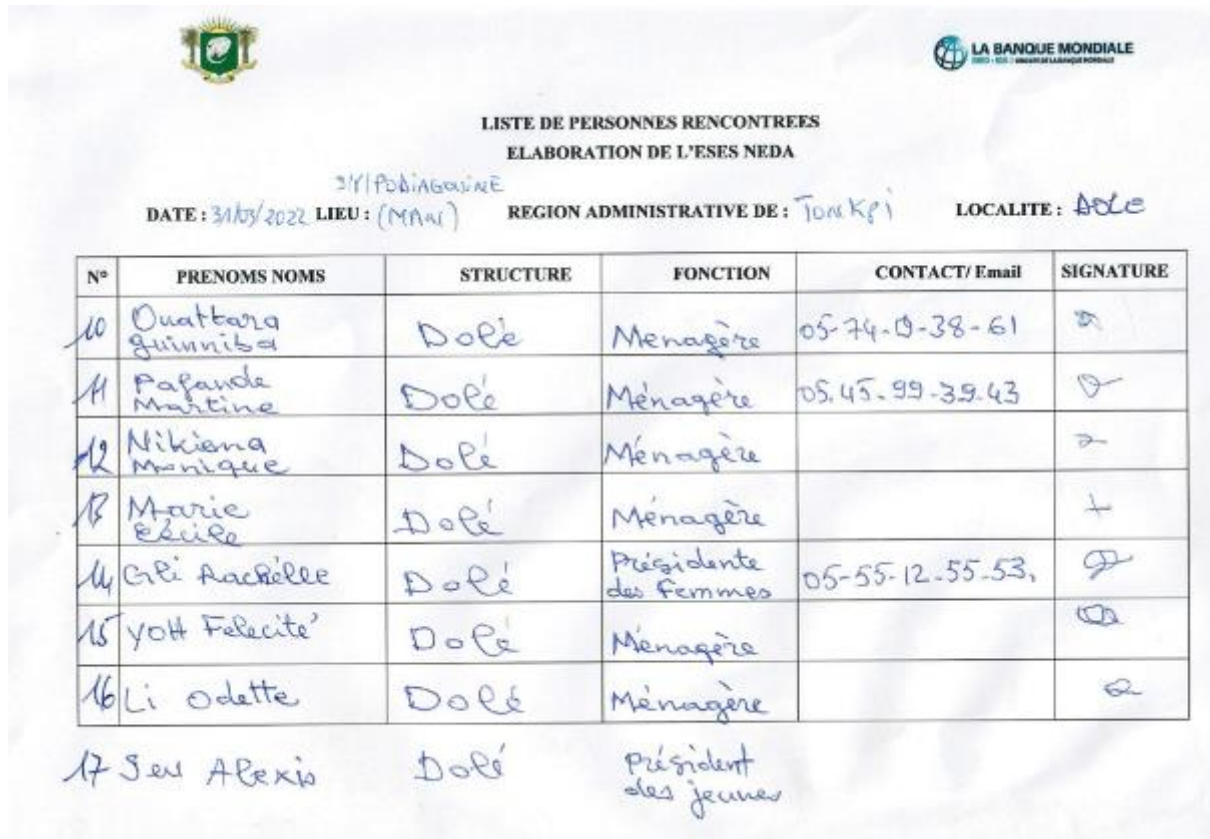 LA BANQUE MONDIALE
LISTE DE PERSONNES RENCONTREES
ELABORATION DE L'ESES NEDA
DATE : 31/03/2022 LIEU : (MAN) REGION ADMINISTRATIVE DE : Tonkpi LOCALITE : DOLE
N° PRENOMS NOMS STRUCTURE FONCTION CONTACT/ Email SIGNATURE
10 Ouattara Guinniba Dolé Menagère 05-74-0-38-61
11 Pafande Martine Dolé Ménagère 05.45-99-39-43
12 Nikiema Monique Dolé Ménagère
13 Marie Cécile Dolé Ménagère
14 Gli Rachelle Dolé Présidente des Femmes 05-55-12-55-53.
15 YOH Felecité Dolé Ménagère
16 Li Odette Dolé Ménagère
17 Seu Alexis Dolé Président des jeunes